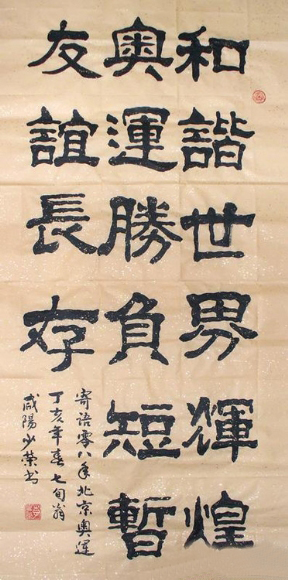 和諧世界輝煌
奧運勝負短暫
友誼長存
寄语零八年北京奥运
丁亥年春七旬翁
咸陽少荣书